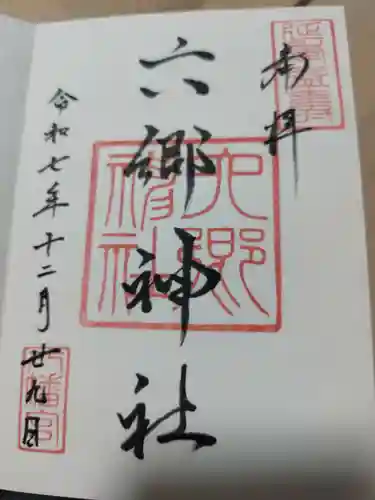 奉拝
六郷神社
六郷神社
令和七年十二月廿九日
八幡宮